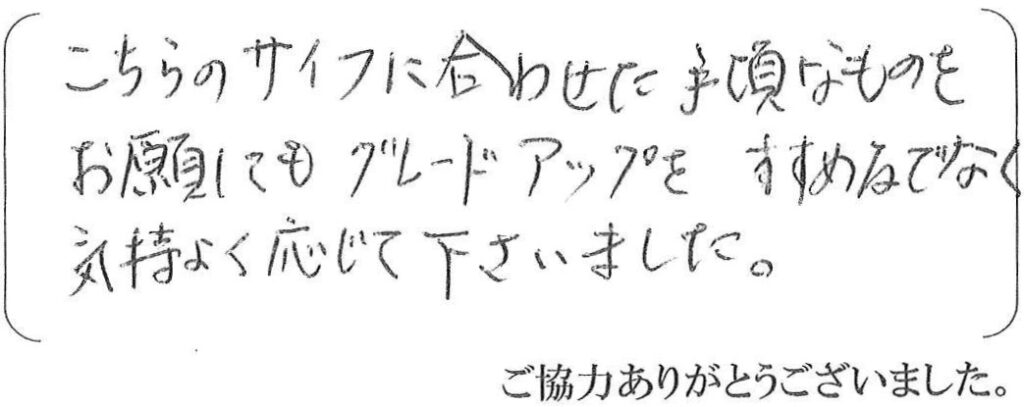 こちらのサイフに合わせた手頃なものを
お願いしてもグレードアップをすすめるでなく
気持よく応じて下さいました。
ご協力ありがとうございました。